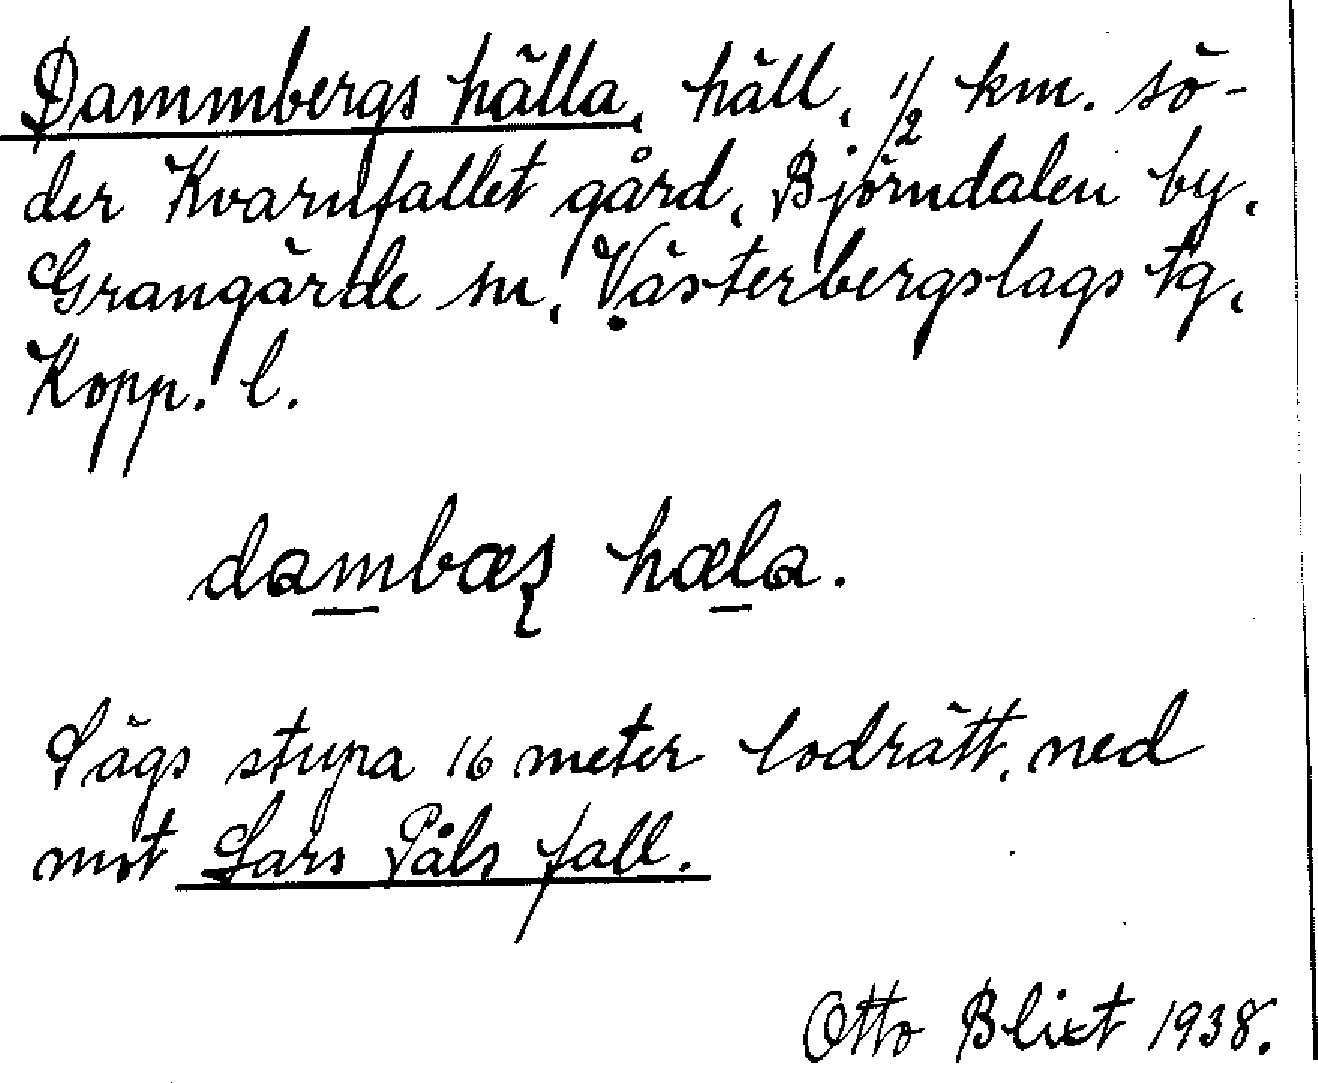 Dammbergs hälla, häll, 1/2 km. sö-
der Kvarnfallet gård, Björndalen by,
Grangärde sn, Västerbergslags tg,
Kopp. l.
dambæʂ hæla.
Sägs stupa 16 meter lodrätt, ned
mot Lars Påls fall.
Otto Blixt 1938.